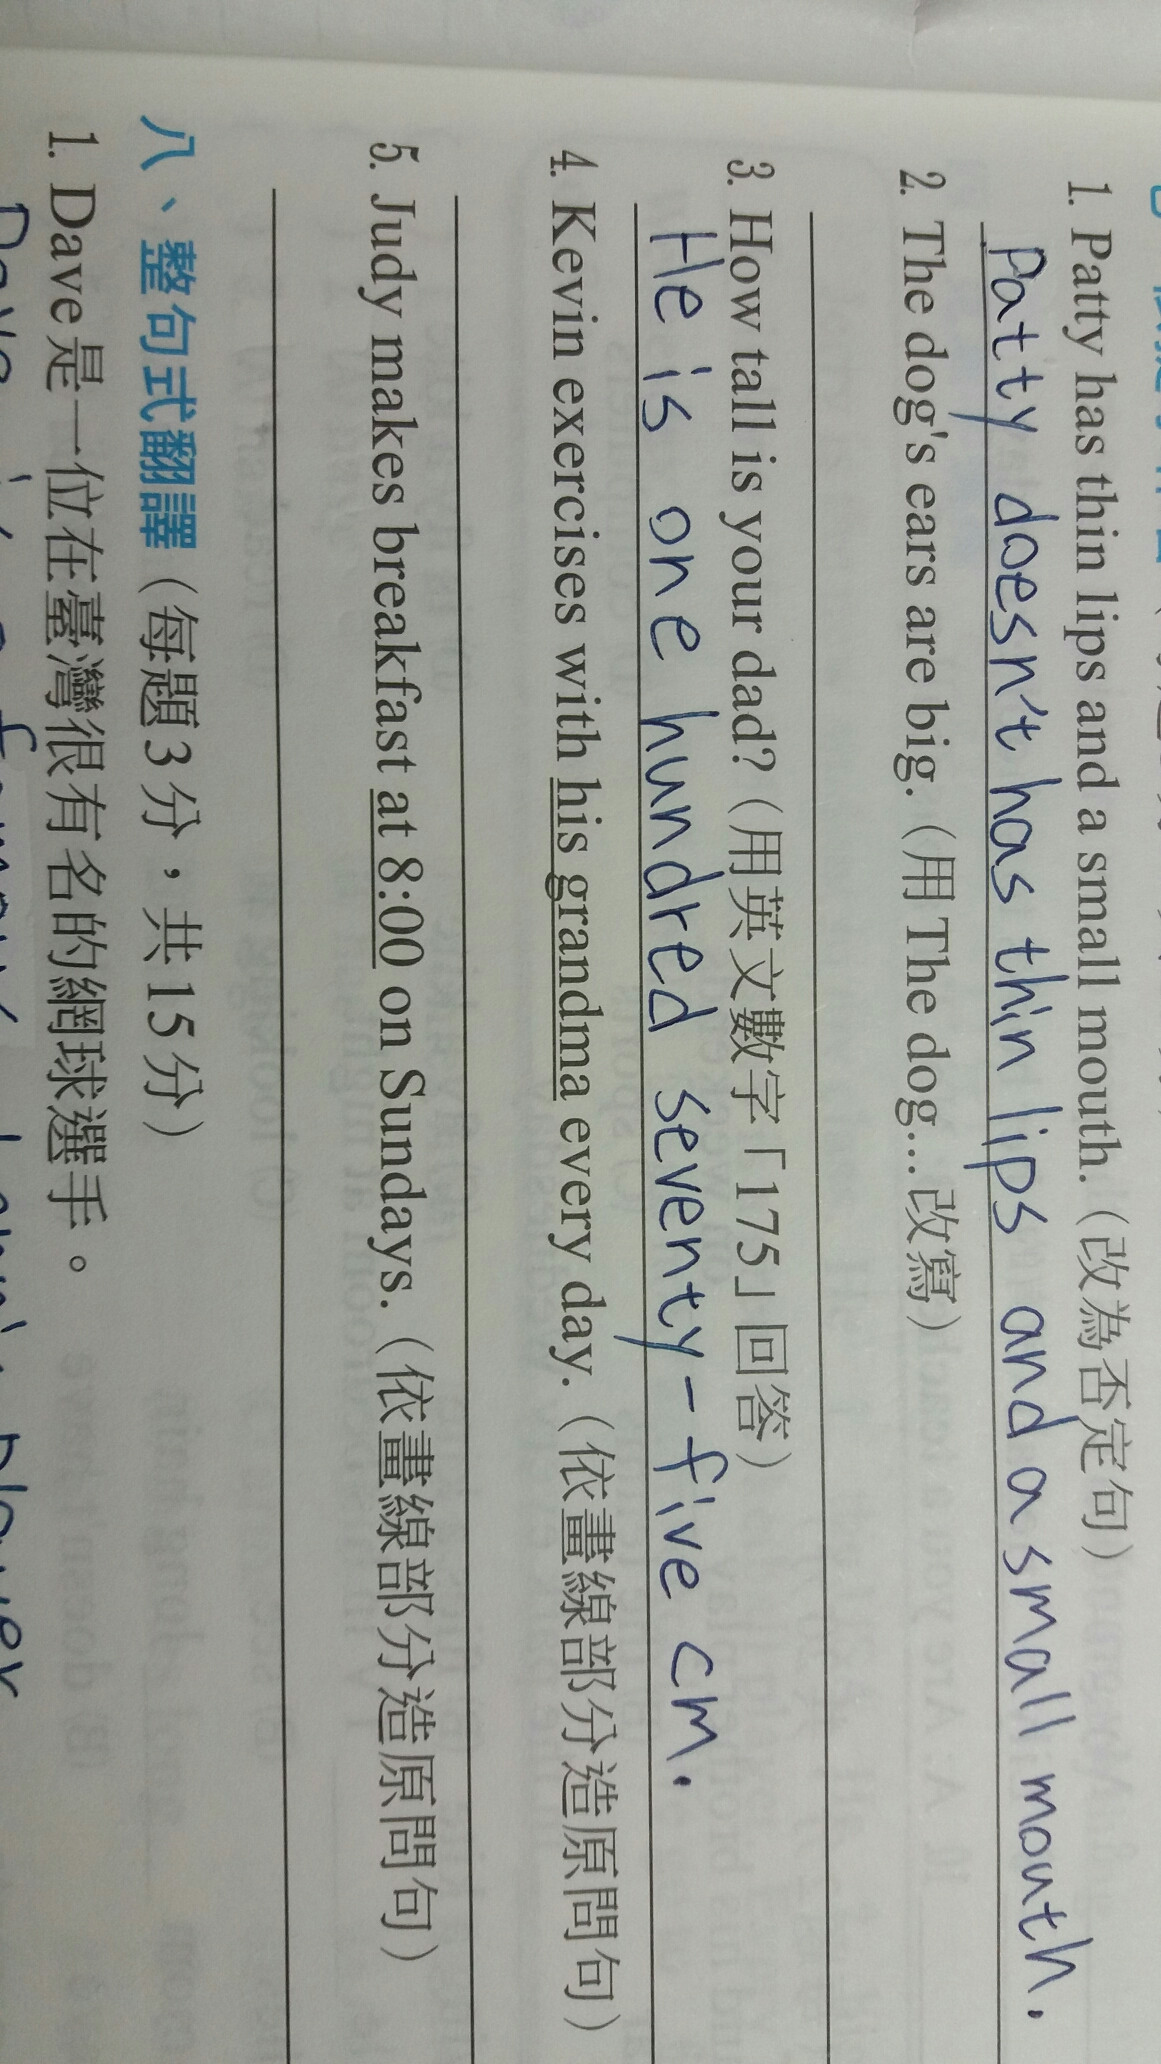 1. Patty has thin lips and a small mouth.（改為否定句）
Patty doesn't has thin lips and a small mouth.
2. The dog's ears are big.（用The dog...改寫）
3. How tall is your dad?（用英文數字「175」回答）
He is one hundred seventy-five cm.
4. Kevin exercises with his grandma every day.（依畫線部分造原問句）
5. Judy makes breakfast at 8:00 on Sundays.（依畫線部分造原問句）
八、整句式翻譯（每題3分，共15分）
1. Dave是一位在臺灣很有名的網球選手。